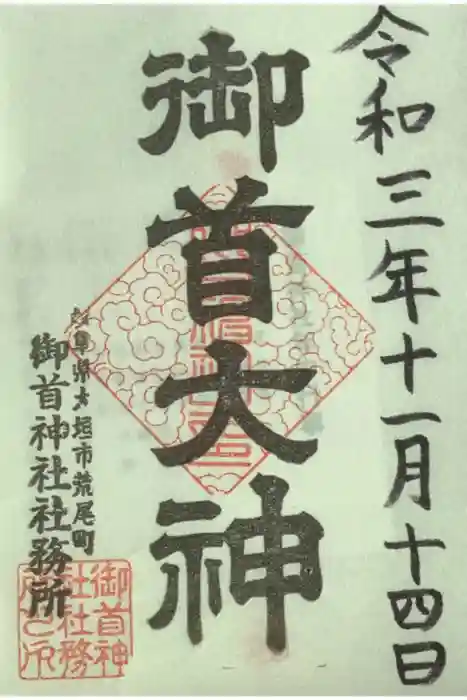 令和三年十一月十四日
御首大神
岐阜県大垣市荒尾町
御首神社社務所
御首神
社社務
所之印